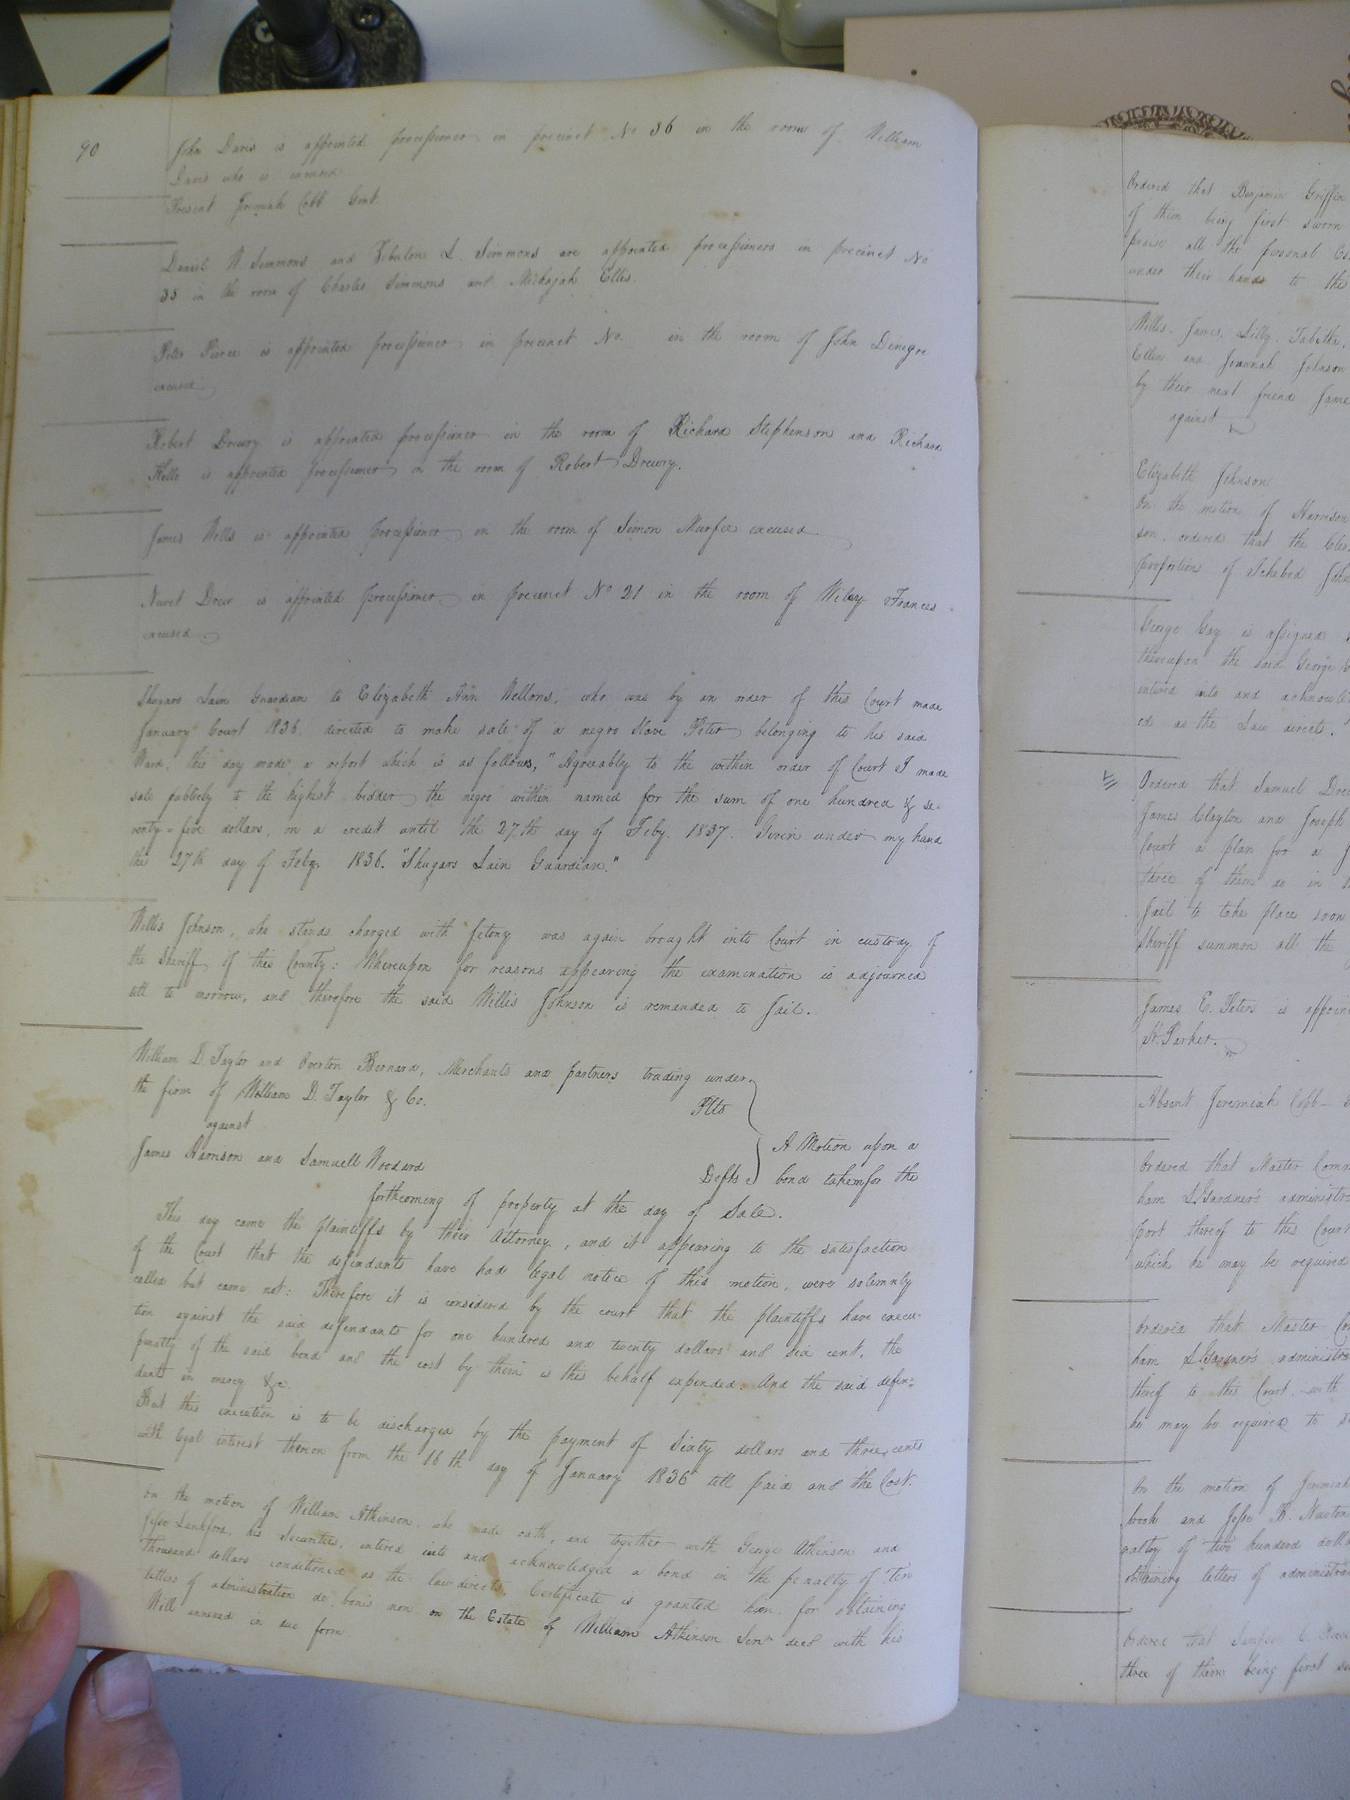 90
John Davis is appointed processioner in precinct No 36 in the room of William
Davis who is excused
Present Jeremiah Cobb Gent.
Daniel W. Simmons and Zebulon L. Simmons are appointed processioners in precinct No
35 in the room of Charles Simmons and Michajah Ellis.
Peter Pierce is appointed processioner in precinct No. in the room of John Denegre
excused
Robert Drewry is appointed processioner in the room of Richard Stephenson and Richard
Kello is appointed processioner in the room of Robert Drewry.
James Wells is appointed processioner in the room of Simon Murfee excused
Newet Drew is appointed processioner in precinct No 21 in the room of Wiley Frances
excused
Shugars Lain Guardian to Elizabeth Ann Wellons, who was by an order of this Court made
January Court 1836. directed to make sale of a negro slave Peter belonging to his said
Ward, this day made a report which is as follows, "Agreeably to the within order of Court I made
sale publicly to the highest bidder the negro within named for the sum of one hundred & se-
venty-five dollars, on a credit until the 27.th day of Feby. 1837. Given under my hand
this 27th day of Feby, 1836. "Shugars Lain Guardian."
Willis Johnson, who stands charged with felony was again brought into Court in custody of
the Sheriff of this County: Whereupon for reasons appearing the examination is adjourned
till to morrow, and therefore the said Willis Johnson is remanded to Jail.
William D. Taylor and Overton Bernard, Merchants and partners trading under
the firm of William D. Taylor & Co. Plts
against
James Harrison and Samuell Woodard Defts
A Motion upon a
bond taken for the
forthcoming of property at the day of Sale.
This day came the plaintiffs by their Attorney, and it appearing to the satisfaction
of the Court that the defendants have had legal notice of this motion, were solemnly
called but came not: Therefore it is considered by the court that the plaintiffs have execu-
tion against the said defendants for one hundred and twenty dollars and six cent, the
penalty of the said bond and the cost by them in this behalf expended. And the said defen-
dants in mercy &c.
But this execution is to be discharged by the payment of Sixty dollars and three cents
with legal interest thereon from the 16th day of January 1836 till paid and the Cost.
On the motion of William Atkinson, who made oath, and together with George Atkinson and
Jesse Lankford, his Securities, entered into and acknowledged a bond in the penalty of Ten
thousand dollars conditioned as the law directs, Certificate is granted him for obtaining
letters of administration de bonis non on the Estate of William Atkinson Senr decd with his
Will annexed in due form.
Ordered that Benjamin Griffin
of them being first sworn
praise all the personal Es
under their hands to the
Willis, James, Lilly, Tabitha,
Ellen and Joannah Johnson
by their next friend Jame
against
Elizabeth Johnson
On the motion of Harrison
son, ordered that the Cler
proportion of Ichabod John
George Gay is assigned
thereupon the said George
entered into and acknowl
ed as the Law directs.
Ordered that Samuel Drew
James Clayton and Joseph
Court a plan for a J
three of them do in
Jail to take place soon
Sheriff summon all the
James E. Peters is appoin
H. Parker.
Absent Jeremiah Cobb
Ordered that Master Comm
ham L. Gardner's administra
port thereof to this Court
which he may be required
Ordered that Master Co
ham L. Gardner's administra
thereof to this Court with
he may be required to
On the motion of Jeremiah
brook and Jesse B. Newton
nalty of two hundred dolla
obtaining letters of administrat
Ordered that Simpson
three of them being first